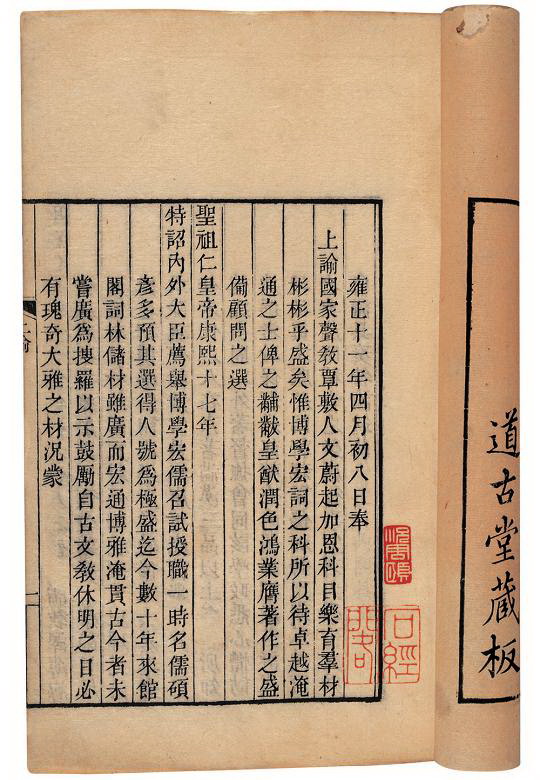 道古堂藏板
雍正十一年四月初八日奉
上諭國家聲教覃敷人文蔚起加恩科目樂育羣材
彬彬乎盛矣惟博學宏詞之科所以待卓越淹
通之士俾之黼黻皇猷潤色鴻業膺著作之盛
備顧問之選
聖祖仁皇帝康熙十七年
特詔內外大臣薦舉博學宏儒召試授職一時名儒碩
彥多預其選得人號爲極盛迄今數十年來館
閣詞林儲材雖廣而宏通博雅淹貫古今者未
嘗廣爲搜羅以示鼓勵自古文教休明之日必
有瑰奇大雅之材況蒙
一
石經